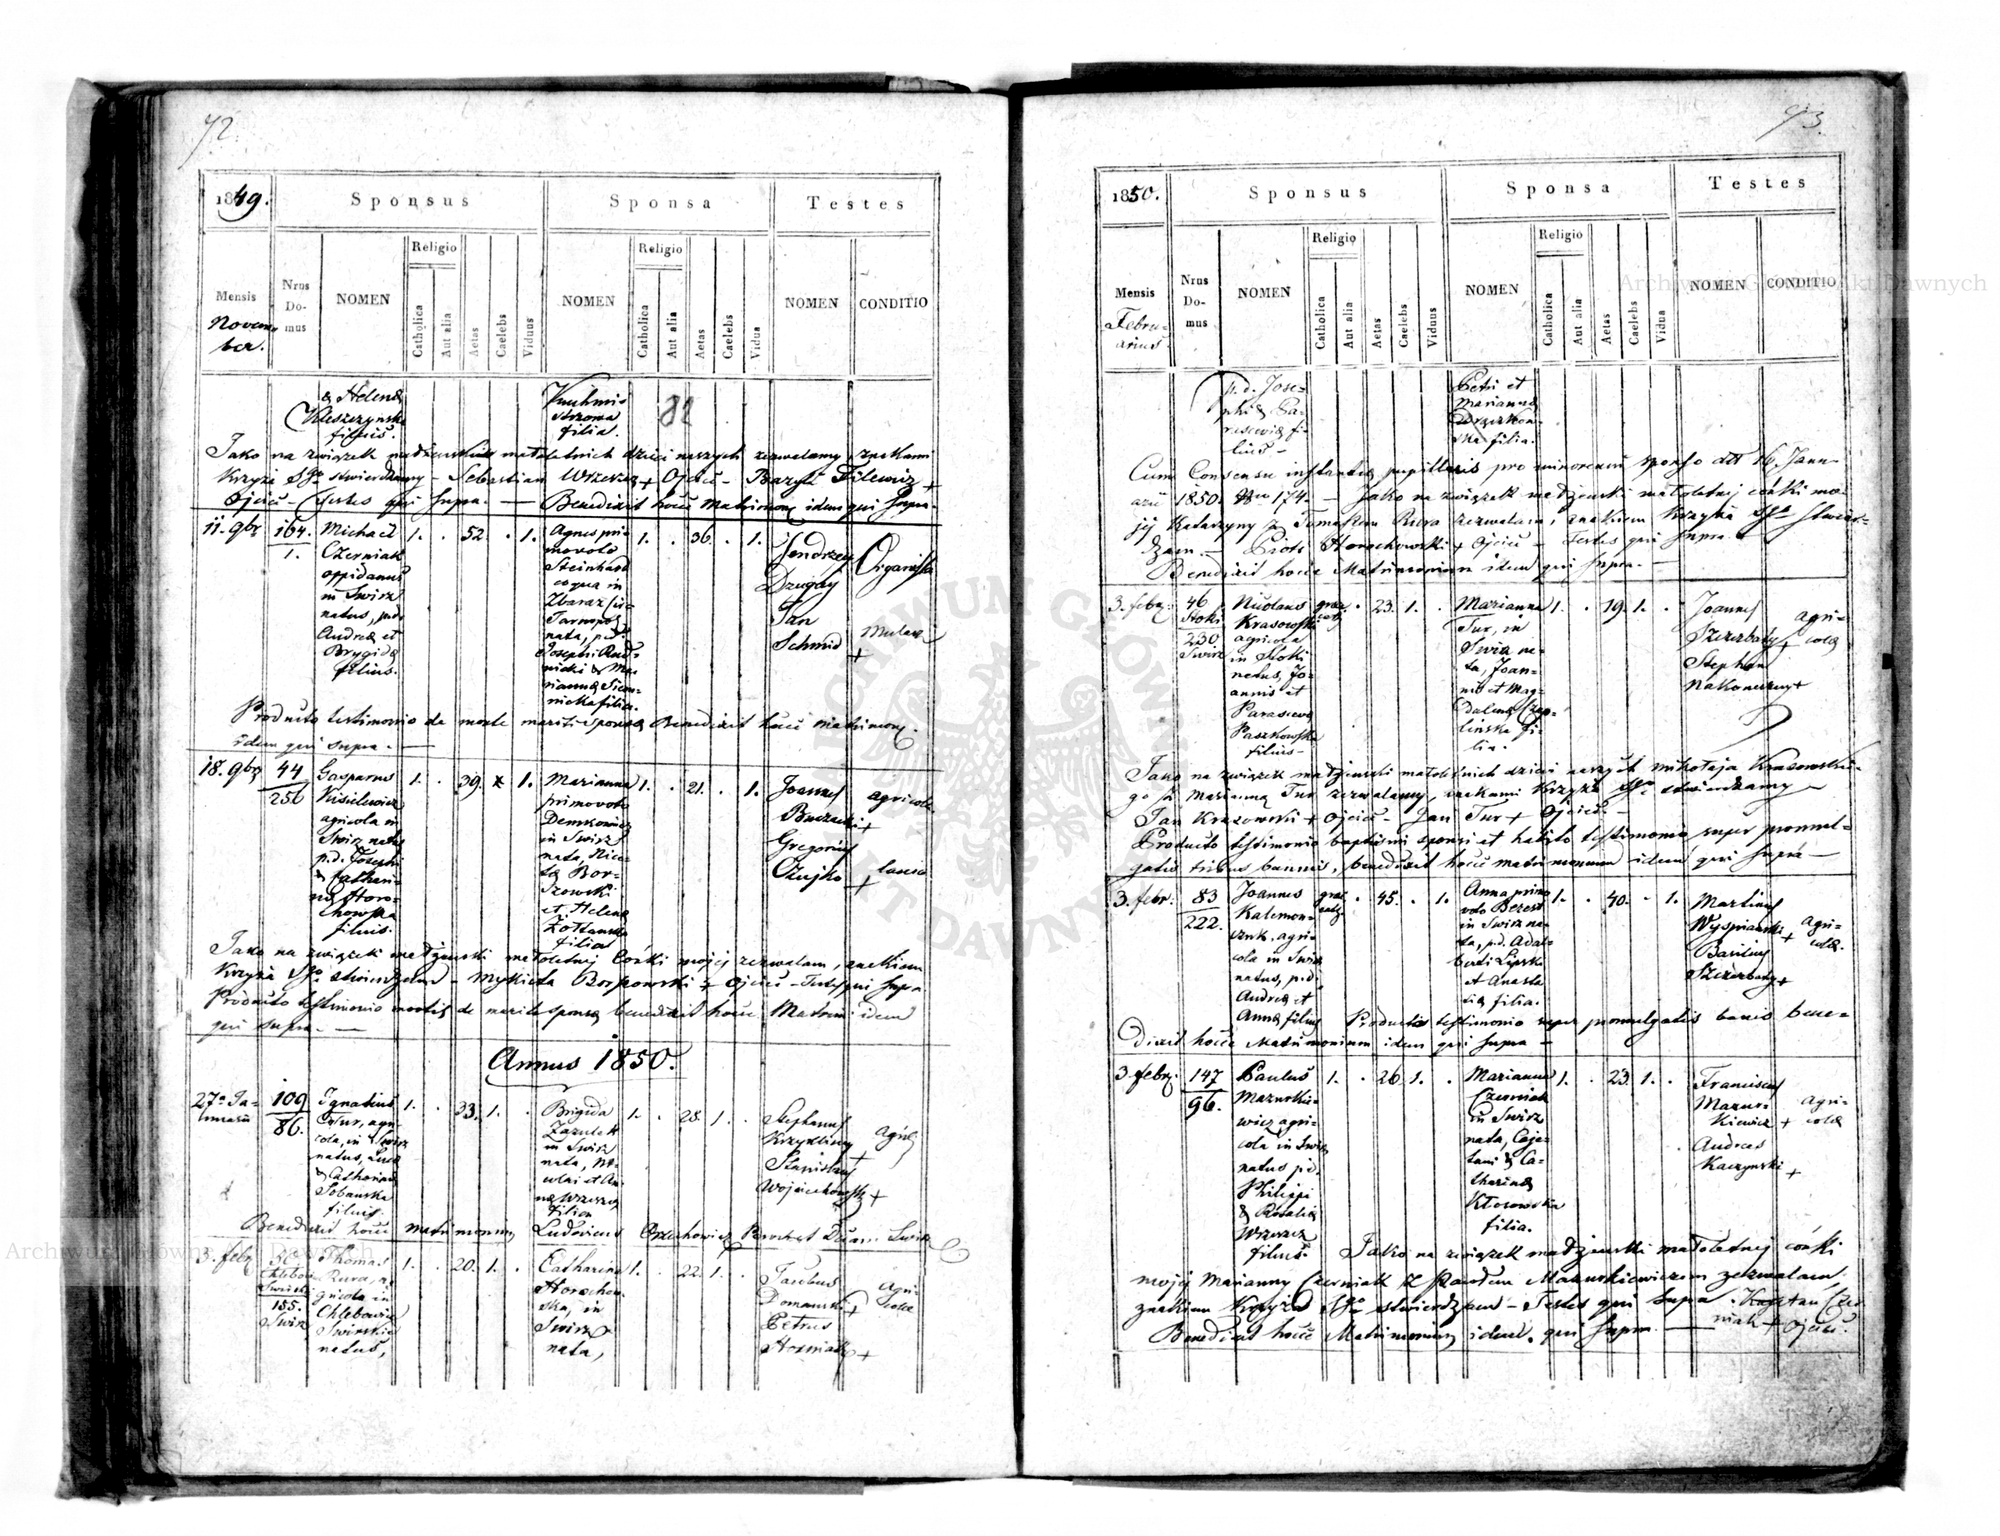 72
1849.
Sponsus
Sponsa
Testes
Mensis
Novem-
ber.
Nrus
Do-
mus
NOMEN
Religio
Catholica
Aut alia
Aetas
Caelebs
Viduus
NOMEN
Religio
Catholica
Aut alia
Aetas
Caelebs
Vidua
NOMEN
CONDITIO
& Helena
filius.
filia.
82
Jako na związek małżeński małoletnich dzieci naszych zezwalamy znakami
Krzyża Sgo stwierdzamy - Sebastian + Ojciec - Bazyli Filewicz +
Ojciec - Testes qui supra. — Benedixit hocce Matrimon. idem qui supra.
11. 9br
164.
1.
Michael
Czerniak
oppidanus
in Swirz
natus, p.d.
Andrea et
Brygida
filius.
1. . 52 . 1.
Agnes pri-
movoto
Steinhard
coqua in
Zbaraz
Tarnopol
nata, p.d.
Josephi
filia.
1. . 36. . 1.
Jendrzey
Dzugay
Jan
Schmid +
Organista
Producto testimonio de morte mariti sponsae Benedixit hocce matrimon.
idem qui supra. —
18. 9br
44
256
Gasparus
Kisielewicz
agricola in
Swirz natus
p.d. Josephi
& Cathari-
na Horo-
chowska
filius.
1. . 39. x 1.
Marianna
primovoto
Demkowicz
in Swirz
nata, Nico-
la Bor-
szowski
et Helena
filia
1. . 21. . 1.
Joannes
Buczacki +
Gregorius
Czujko +
agricola
Jako na związek małżeński małoletniej Córki mojej zezwalam, znakiem
Krzyża Sgo stwierdzam - Mykieta Borszowski + Ojciec - Testes qui supra
Producto testimonio mortis de marito sponsae benedixit hocce Matrim: idem
qui supra. —
Annus 1850.
27a Ja-
nuarii
109
86.
Ignatius
Tur, agri-
cola, in Swirz
natus, Luca
& Catharina
Sobanska
filius.
1. . 33. 1. .
Brigida
Zazulak
in Swirz
nata, Ni-
colai et An-
na
filia
1. . 28. 1. .
Stephanus
+
Stanislaus
Wojciechowski +
agricol
Benedixit hocce matrimonium Ludovicus Orzechowicz
3. febr
50
Chlebowice
Swirskie
185.
Swirz
Thomas
Rura, a-
gricola in
Chlebowice
Swirskie
natus,
1. . 20. 1. .
Catharina
Horochow-
ska, in
Swirz
nata,
1. . 22. 1. .
Jacobus
Domanski +
Petrus
+
agri-
cola
73.
1850.
Sponsus
Sponsa
Testes
Mensis
Febru-
arius
Nrus
Do-
mus
NOMEN
Religio
Catholica
Aut alia
Aetas
Caelebs
Viduus
NOMEN
Religio
Catholica
Aut alia
Aetas
Caelebs
Vidua
NOMEN
CONDITIO
p.d. Jose-
phi & Pa-
rascevia fi-
lius —
Petri et
Marianna
filia.
Cum Consensu instantiae pupillaris pro minorenni sponso ddt 16. Janu-
arii 1850. Nro 174. — Jako na związek małżeński małoletniej córki mo-
jej Katarzyny z Tomaszem Rura zezwalam, znakiem Krzyża Sgo stwier-
dzam. — Piotr Horochowski + Ojciec — Testes qui supra. —
Benedixit hocce Matrimonium idem qui supra. —
3. febr.
46
Stoki
230
Swirz
Nicolaus
Krasowski
agricola
in Stoki
natus, Jo-
annis et
Parasceva
Paszkowska
filius —
graec
cath . 23. 1. .
Marianna
Tur, in
Swirz na-
ta, Joan-
nis et Mag-
dalena Czep-
linska fi-
lia.
1. . 19. 1. .
Joannes
Szczerbaty +
Stephan
Nakoneczny +
agri-
cola
Jako na związek małżeński małoletnich dzieci naszych Mikołaja Krasowskie-
go z Marianną Tur zezwalamy, znakami Krzyża Sgo stwierdzamy —
Jan Krasowski + Ojciec - Jan Tur + Ojciec. —
Producto testimonio baptismi sponsi et habito testimonio super promul-
gatis tribus bannis, benedixit hocce matrimonium idem qui supra —
3. febr.
83
222.
Joannes
Kalemon-
czuk, agri-
cola in Swirz
natus, p.d.
Andrea et
Anna filius
graec
cath . 45. . 1.
Anna primo
voto Berest
in Swirz na-
ta, p.d. Adal-
berti Lipski
et Anasta-
sia filia.
1. . 40. . 1.
Martinus
Wyspianski +
Basilius
Szczerbaty +
agri-
cola.
Producto testimonio super promulgatis bannis bene-
dixit hocce Matrimonium idem qui supra —
3. febr.
147
96.
Paulus
Mazurkie-
wicz agri-
cola in Swirz
natus p.d.
Philippi
& Rosalia
Wrzeszcz
filius.
1. . 26. 1. .
Marianna
Czerniak
in Swirz
nata, Caje-
tani & Ca-
tharina
Kłosowska
filia.
1. . 23. 1. .
Franciscus
Mazur-
kiewicz +
Andreas
Kaczynski +
agri-
cola
Jako na związek małżeński małoletniej córki
mojej Marianny Czerniak ze Pawłem Mazurkiewiczem zezwalam
znakiem Krzyża Sgo stwierdzam - Testes qui supra. Kajetan Czer-
niak + Ojciec.
Benedixit hocce Matrimonium idem qui supra. —
Archiwum Główne Akt Dawnych
Archiwum Główne Akt Dawnych
ARCHIWUM GŁÓWNE AKT DAWNYCH